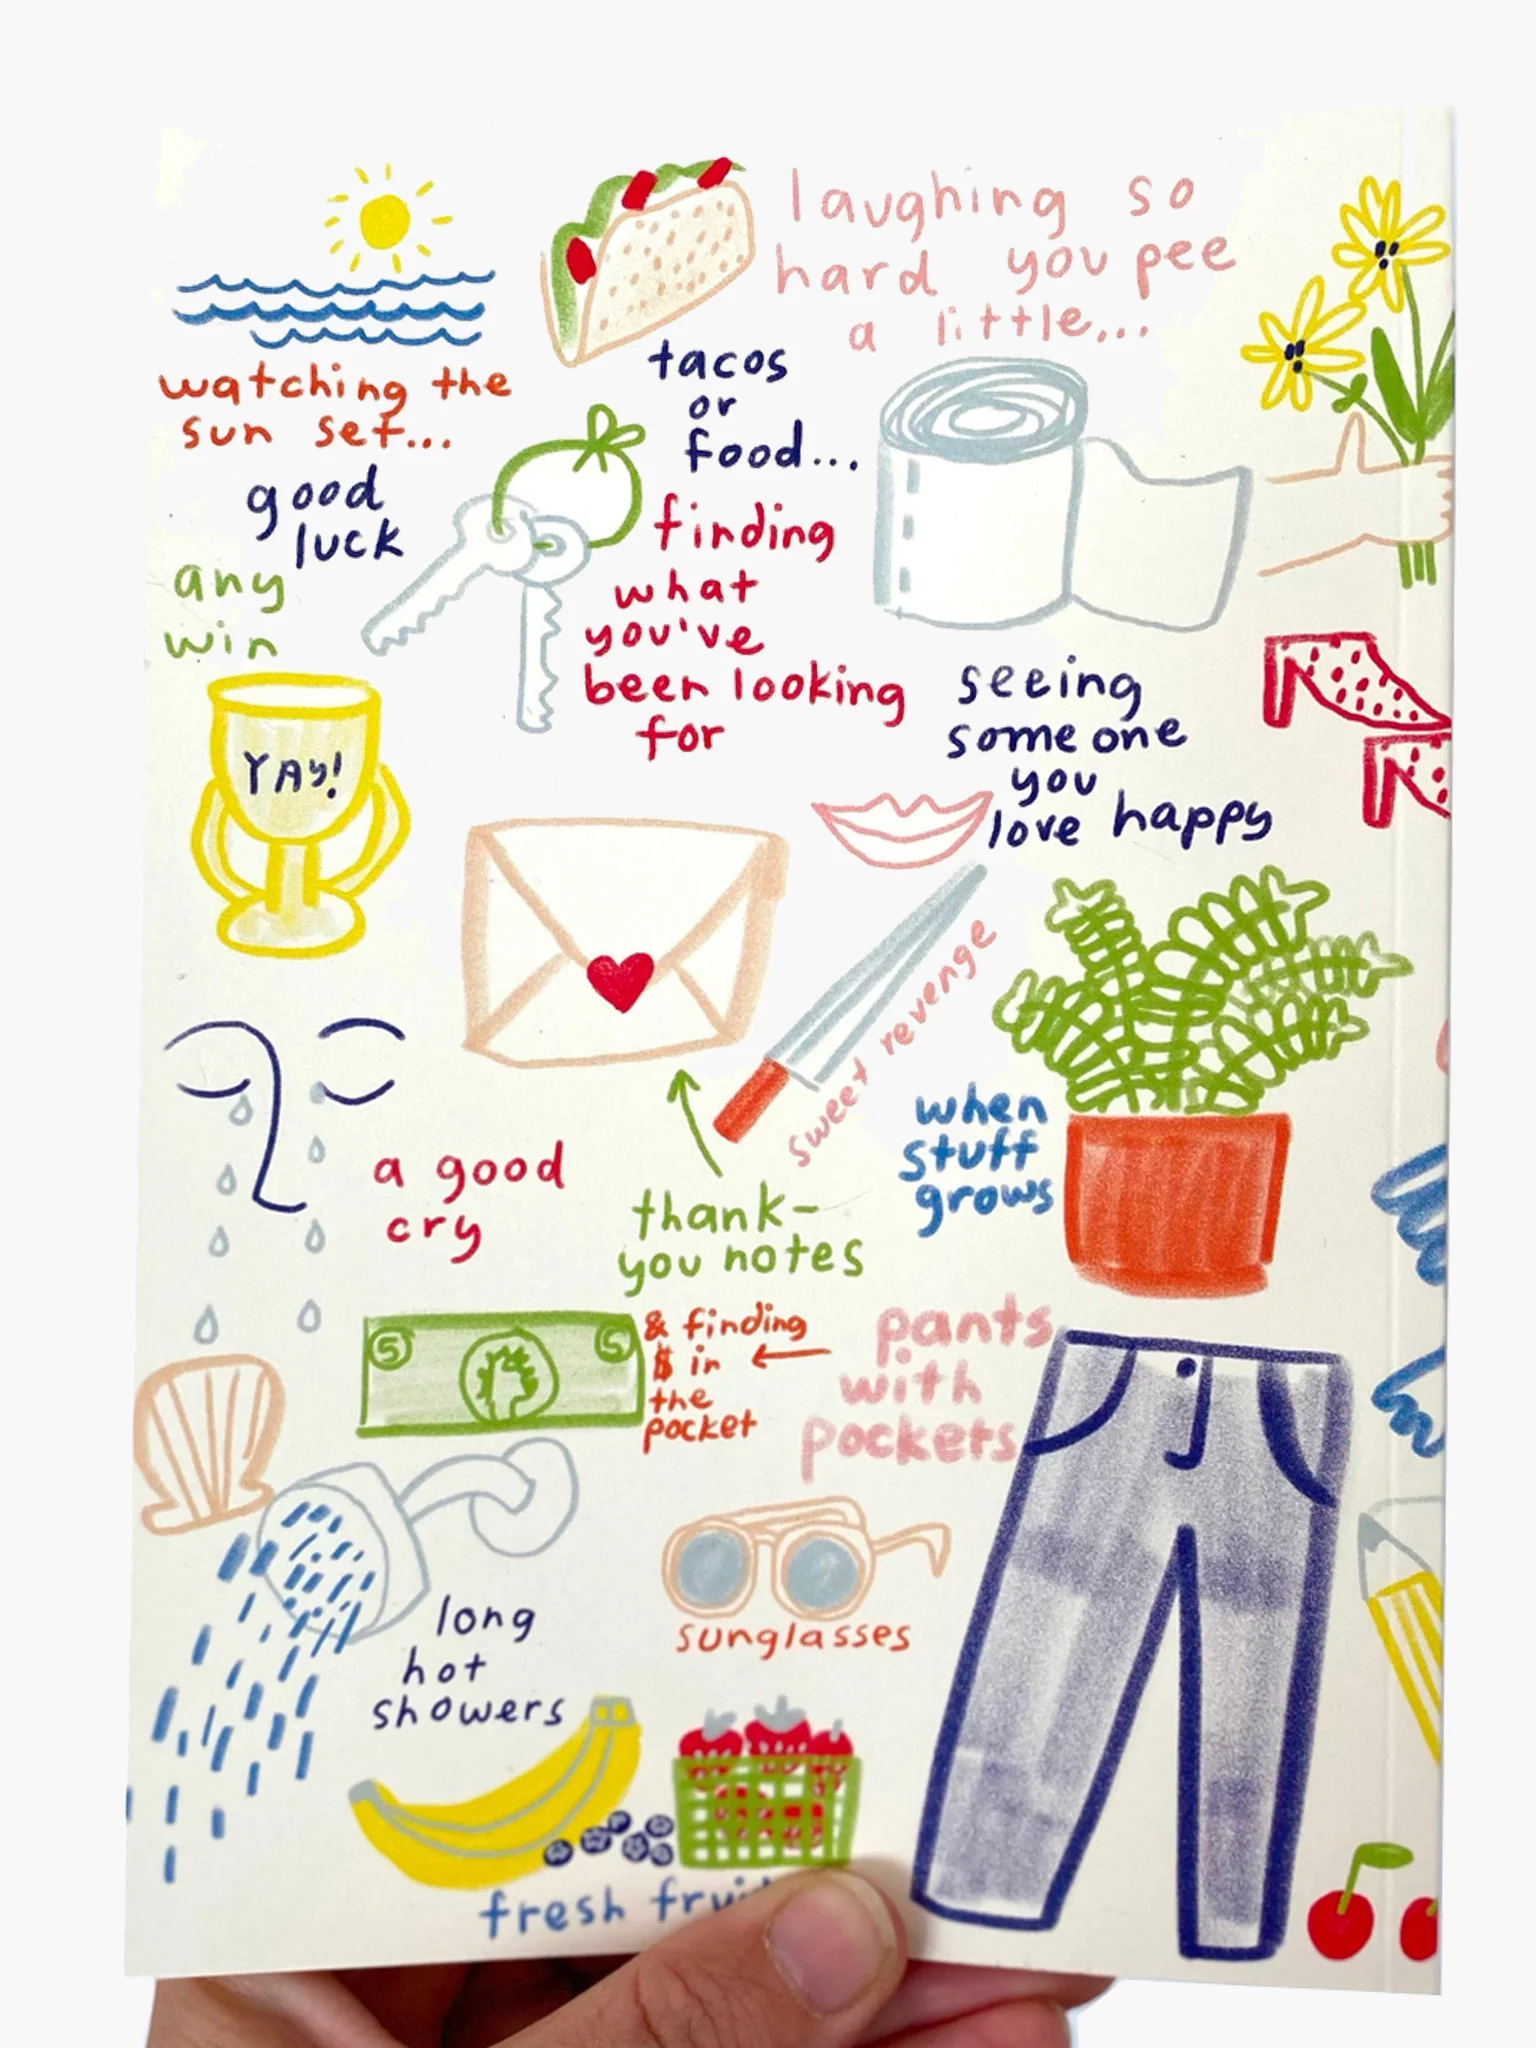 laughing so
hard you pee
a little...
tacos
or
food...
watching the
sun set...
good
luck
any
win
YAY!
finding
what
you've
been looking
for
seeing
someone
you
love happy
sweet revenge
a good
cry
thank-
you notes
when
stuff
grows
5 5
& finding
$ in
the
pocket
pants
with
pockets
long
hot
showers
sunglasses
fresh